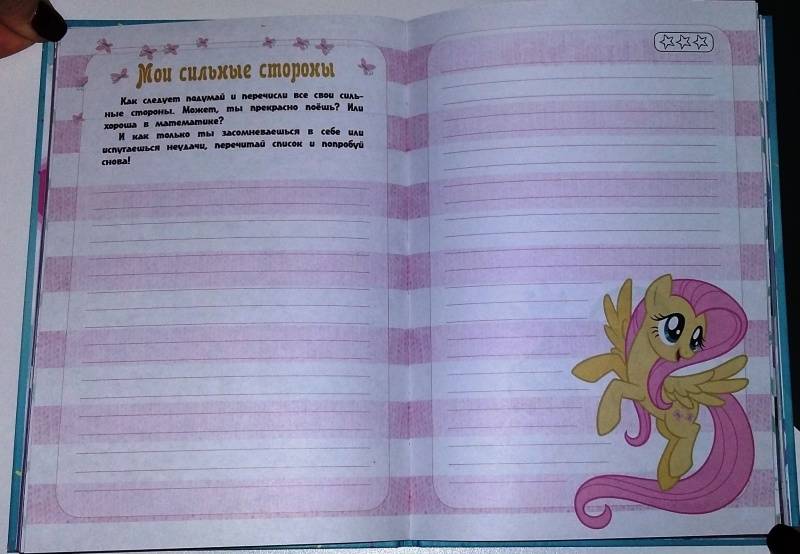 Мои сильные стороны
Как следует подумай и перечисли все свои силь-
ные стороны. Может, ты прекрасно поёшь? Или
хороша в математике?
И как только ты засомневаешься в себе или
испугаешься неудачи, перечитай список и попробуй
снова!